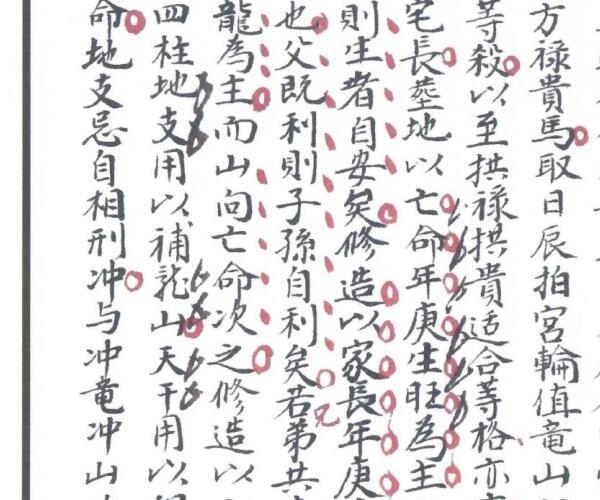 方禄貴馬取日辰拍宮輪值竜山
等殺以至拱禄拱貴适合等格亦
宅長塟地以亡命年庚生旺為主
則生者自安矣修造以家長年庚
也父既利則子孫自利矣若弟共
兄
龍為主而山向亡命次之修造以
四柱地支用以補龍山天干用以
命地支忌自相刑冲与冲竜冲山